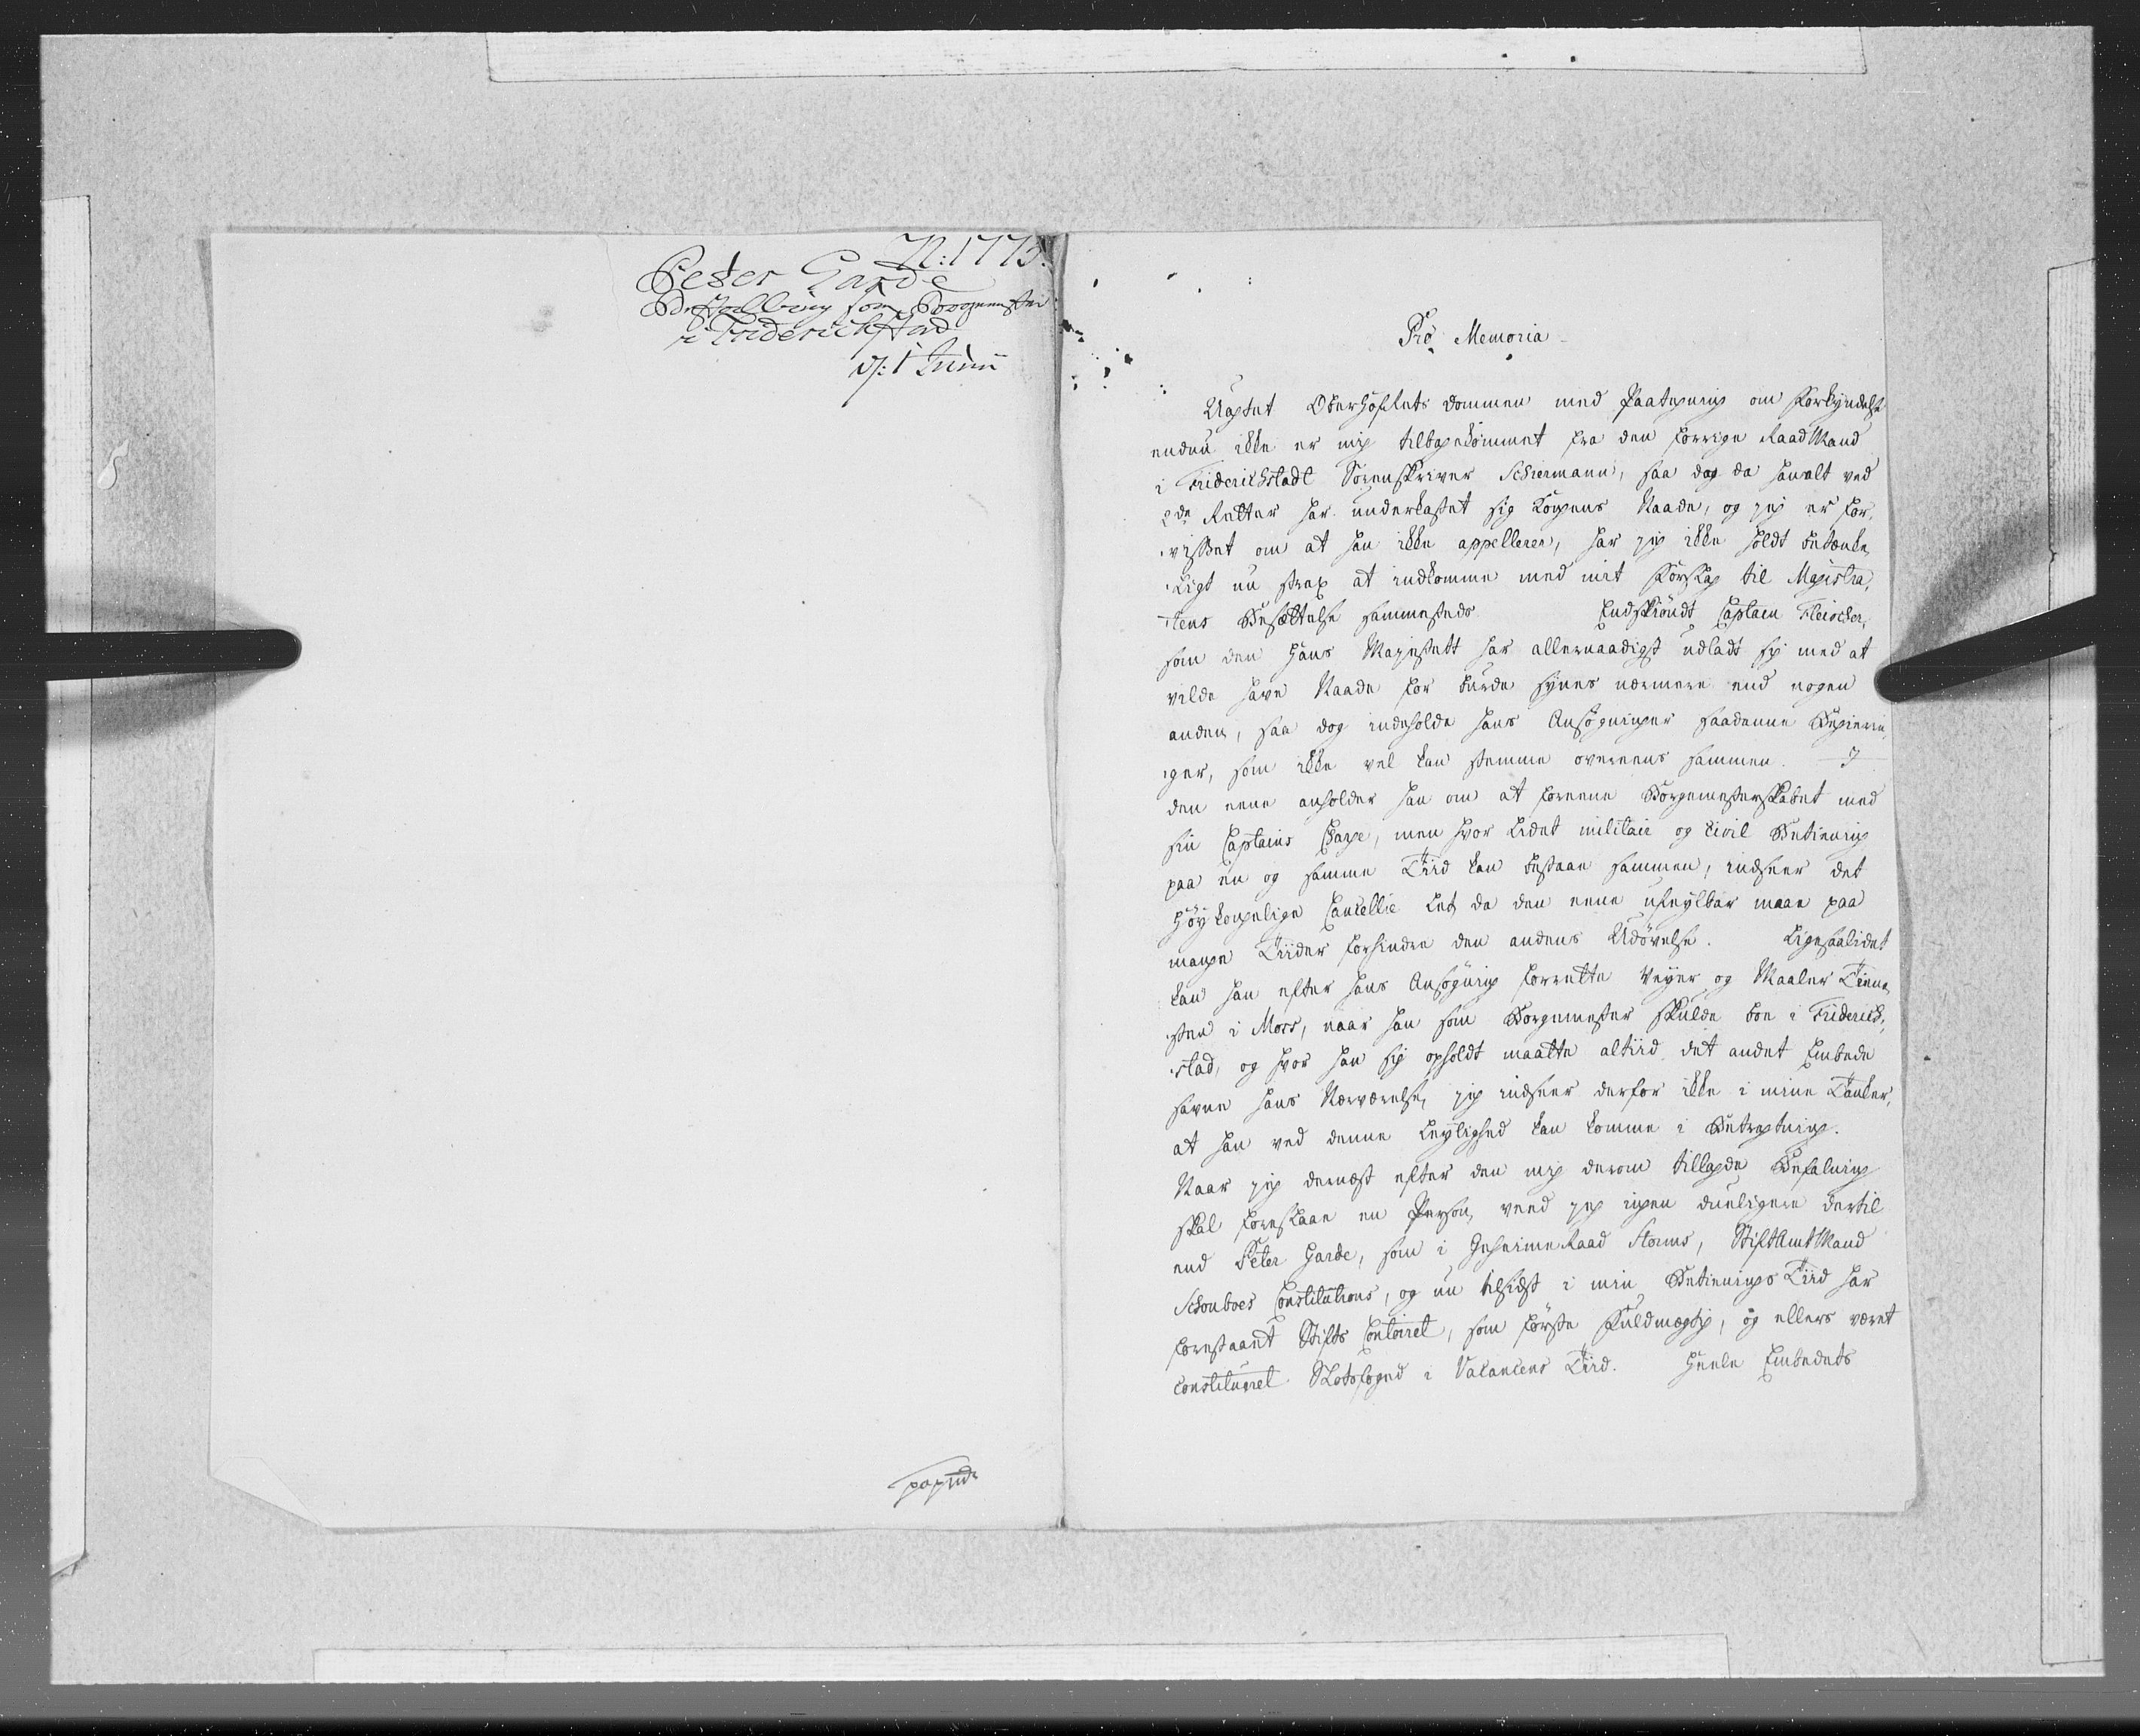 N: 1773.
Peter Garde
Bestalling som Borgemester
i Friderichstad
d: 1 Junii
Pro Memoria
Uagtet OberHofRets dommen med Paategning om Forkyndelse
endnu ikke er mig tilbagekommet fra den forrige RaadMand
i Friderichstadt Sorenskriver Schiermann, saa dog da han alt ved
2de Retter har underkastet sig Kongens Naade, og jeg er for-
visset om at han ikke appellerer, har jeg ikke holdt betænke-
ligt nu strax at indkomme med mit Forslag til Magistra-
tens Besættelse sammesteds. Endskiöndt Captain Fleischer,
som den Hans Majestett har allernaadigst udladt sig med at
vilde have Naade for burde synes nærmere end nogen
anden, saa dog indeholde hans Ansögninger saadanne Begierin-
ger, som ikke vel kan stemme overeens sammen. I
den eene anholder han om at foreene Borgemesterskabet med
sin Captains Charge, men hvor lidet militair og Civil Betiening
paa en og samme Tiid kan bestaae sammen, indseer det
Höykongelige Cancellie let, da den eene ufeylbar maae paa
mange Tiider forhindre den andens Udövelse. Ligesaalidet
kan han efter hans Ansögning forrette Veyer og Maaler Tiene-
sten i Moss, naar han som Borgemester skulde boe i Friderich-
stad, og hvor han sig opholdt maatte altiid det andet Embede
savne hans Nærværelse, jeg indseer derfor ikke i mine Tanker,
at han ved denne Leylighed kan komme i Betragtning.
Naar jeg dernæst efter den mig derom tillagde Befaling
skal foreslaae en Person, veed jeg ingen dueligere dertil
end Peter Garde, som i GeheimeRaad Storms, StiftAmtMand
Schouboes Constitutions, og nu tilsidst i min Betienings Tiid har
forestaaet Stifts Contoiret, som förste Fuldmægtig, og ellers været
Constitueret Slotsfoged i Vacancens Tiid. Heele Embedets